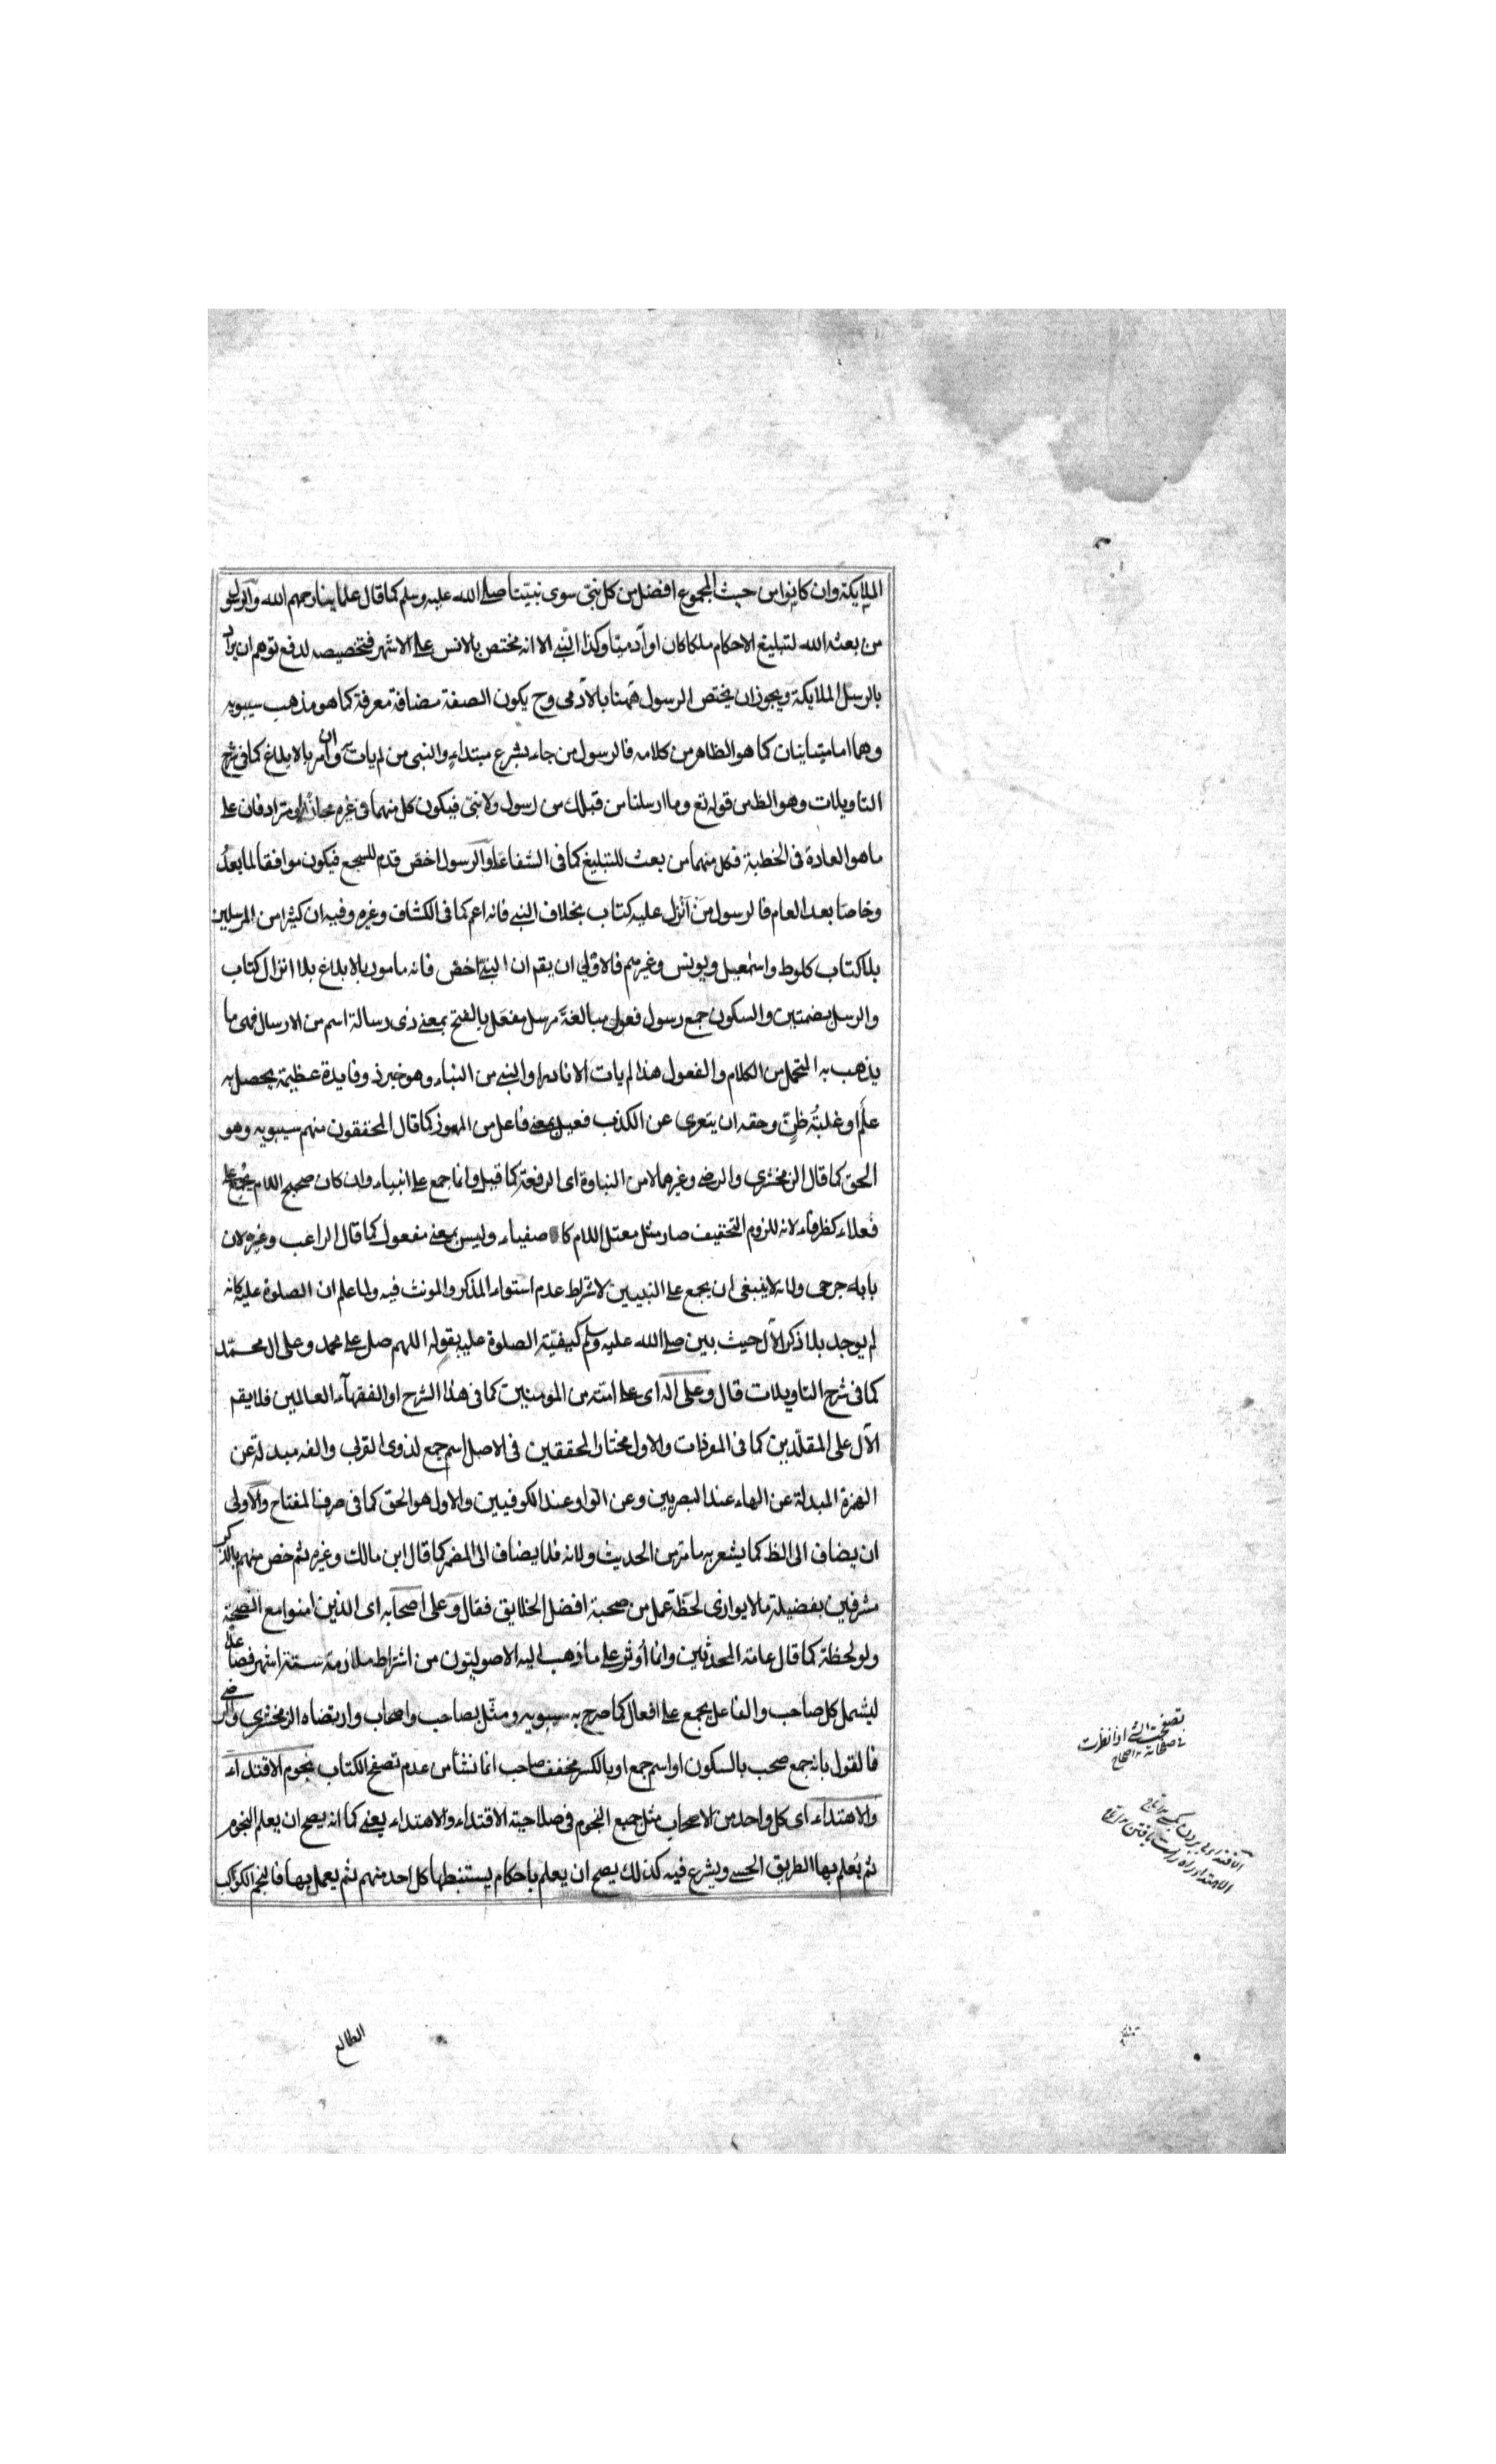 الملايكة وان كانوا من حيث المجموع افضل من كل نبىّ سوى نبيّنا صلى الله عليه وسلم كما قال علماينا رحمهم الله والرسول
من بعثه الله لتبليغ الاحكام ملكا كان او آدميّا وكذا النبى الا انه مختص بالانس على الاشهر فتخصيصه لدفع توهم ان يراد
بالرسل الملايكة ويجوز ان يختص الرسول ههنا بالآدمى وح يكون الصفة مضافة معرفة كما هو مذهب سيبويه
وهما اما متباينان كما هو الظاهر من كلامه فالرسول من جاء بشرع مبتداء والنبى من لم يات به وان امر بالابلاغ كما فى شرح
التاويلات وهو الظ من قوله تع وما ارسلنا من قبلك من رسول ولا نبىّ فيكون كل منهما فى غيره مجازا او مترادفان على
ما هو العادة فى الخطبة فكل منهما من بعث للتبليغ كما فى الشفا والرسول اخصّ قدم للسجع فيكون موافقا لما بعدُ
وخاصّا بعد العام فالرسول من انزل عليه كتاب بخلاف النبى فانه اعم كما فى الكشاف وغيره وفيه ان كثيرا من المرسلين
بلا كتاب كلوط واسمعيل ويونس وغيرهم فالاولى ان يقم ان النبى اخص فانه مامور بالابلاغ بلا انزال كتاب
والرسل بضمتين والسكون جمع رسول فعول مبالغة مرسل مفعل بالفتح بمعنى ذى رسالة اسم من الارسال فهى ما
يذهب به المتحمل من الكلام والفعول هذا لم يات الا نادرا والنبى من النباء وهو خبر ذو فايدة عظيمة يحصل به
علم او غلبة ظن وحقه ان يتعرى عن الكذب فعيل بمعنى فاعل من المهموز كما قال المحققون منهم سيبويه وهو
الحق كما قال الزمخشرى والرضى وغيرهما لا من النباوة اى الرفعة كما قيل وانما جمع على انبياء وان كان صحيح اللام يجمع على
فعلاء كظرفاء لانه للزوم التخفيف صار مثل معتل اللام كاصفياء وليس بمعنى مفعول كما قال الراغب وغيره لان
بابه جرحى ولانه لا ينبغى ان يجمع على النبيين لاشتراط عدم استواء المذكر والمونث فيه ولما علم ان الصلوة عليه كانه
لم يوجد بلا ذكر الآل حيث بين صلى الله عليه وسلم كيفيّة الصلوة عليه بقوله اللهم صل على محمد وعلى ال محمّد
كما فى شرح التاويلات قال وعلى اله اى على امته من المومنين كما فى هذا الشرح او الفقهآء العالمين فلا يقم
الآل على المقلّدين كما فى المفردات والاول مختار المحققين فى الاصل اسم جمع لذوى القربى والفه مبدلة عن
الهمزة المبدلة عن الهاء عند البصريين وعن الواو عند الكوفيين والاول هو الحق كما فى صرف المفتاح والاولى
ان يضاف الى الظ كما يشعر به ما مر من الحديث ولانه قلما يضاف الى المضمر كما قال ابن مالك وغيره ثم خص منهم بالذكر
مشرفين بفضيلة ما لا يوازى لحظة عمل من صحبة افضل الخلايق فقال وعلى اصحابه اى الذين امنوا مع الصحبة
ولو لحظة كما قال عامة المحدثين وانما اوثر على ما ذهب اليه الاصوليّون من اشتراط ملازمة ستة اشهر فصاعدا
ليشمل كل صاحب والفاعل يجمع على افعال كما صرح به سيبويه ومثّل بصاحب واصحاب وارتضاه الزمخشرى والرضى
فالقول بانه جمع صحب بالسكون او اسم جمع او بالكسر مخفف صاحب انما نشأ من عدم تصفح الكتاب نجوم الاقتداء
والاهتداء اى كل واحد من الاصحاب مثل جميع النجوم فى صلاحية الاقتداء والاهتداء يعنى كما انه يصح ان يعلم النجوم
ثم يُعلم بها الطريق الحسى ويشرع فيه كذلك يصح ان يعلم باحكام يستنبطها كل احد منهم ثم يعمل بها فالنجم الكوكب
تصفحت الشئ اذا نظرت
فى صفحاته صحاح
الاقتداء پى بردن بكسى تاج
الاهتداء راه راست يافتن تاج
الطالع